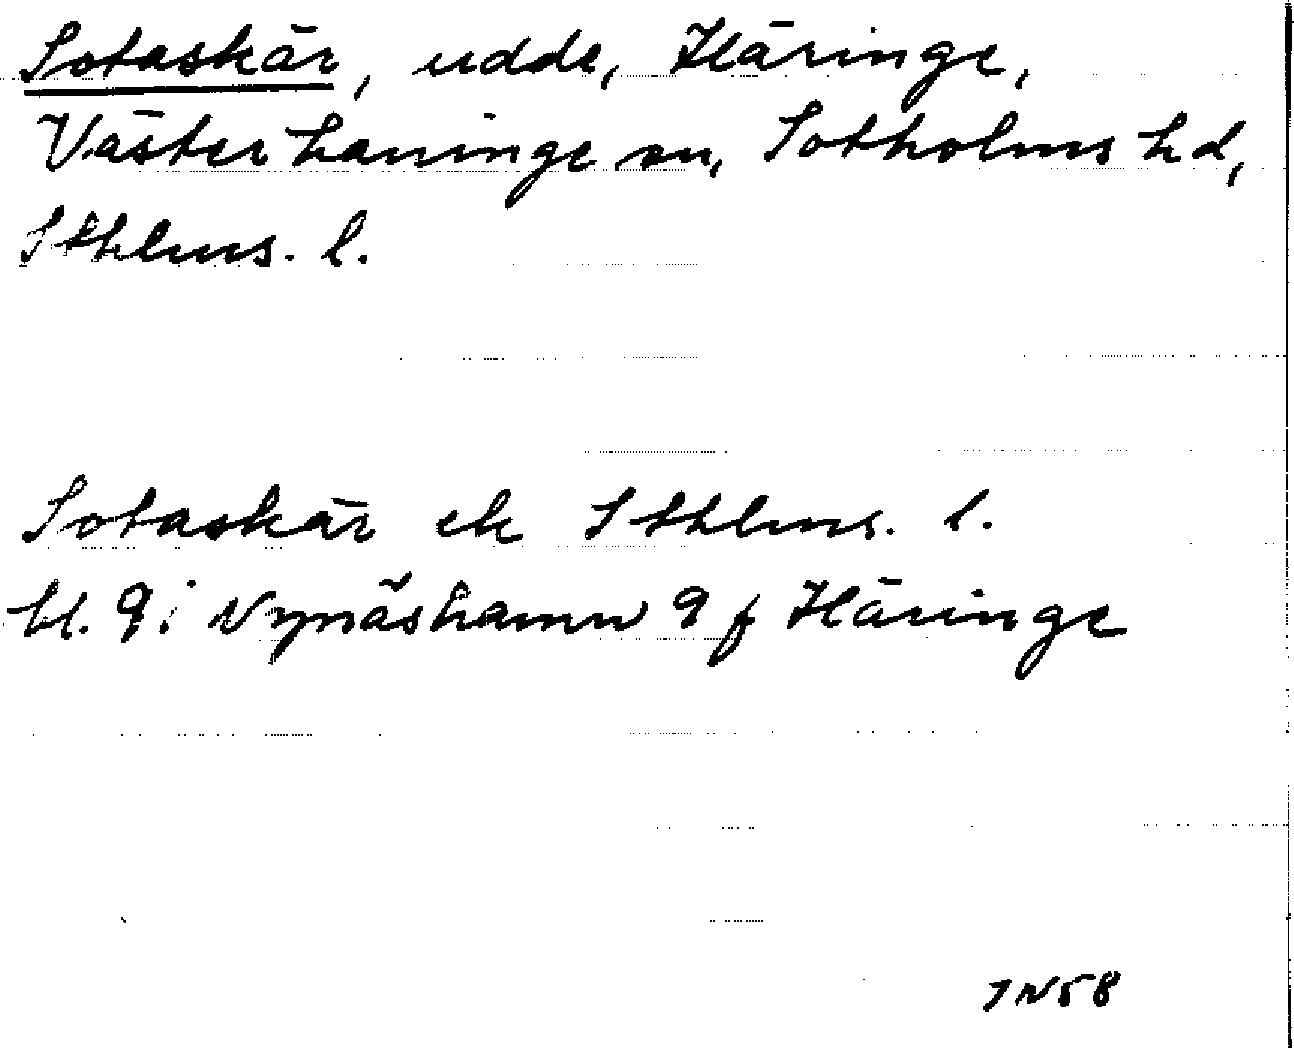 Sotaskär, udde, Häringe,
Västerhaninge sn, Sotholms hd,
Sthlms. l.
Sotaskär ek Sthlms. l.
bl. 9i Nynäshamn 9 f Häringe
JN58